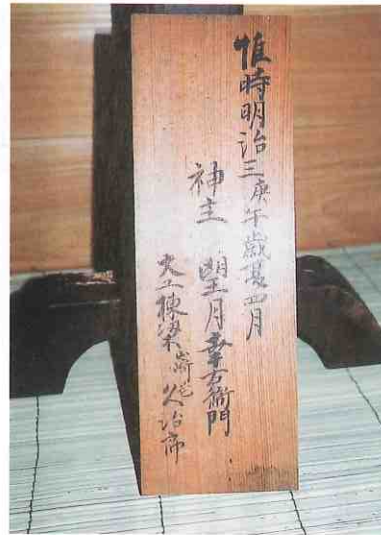 惟時明治三庚午歳夏四月
神主 望月幸右衛門
大工棟梁 久治郎